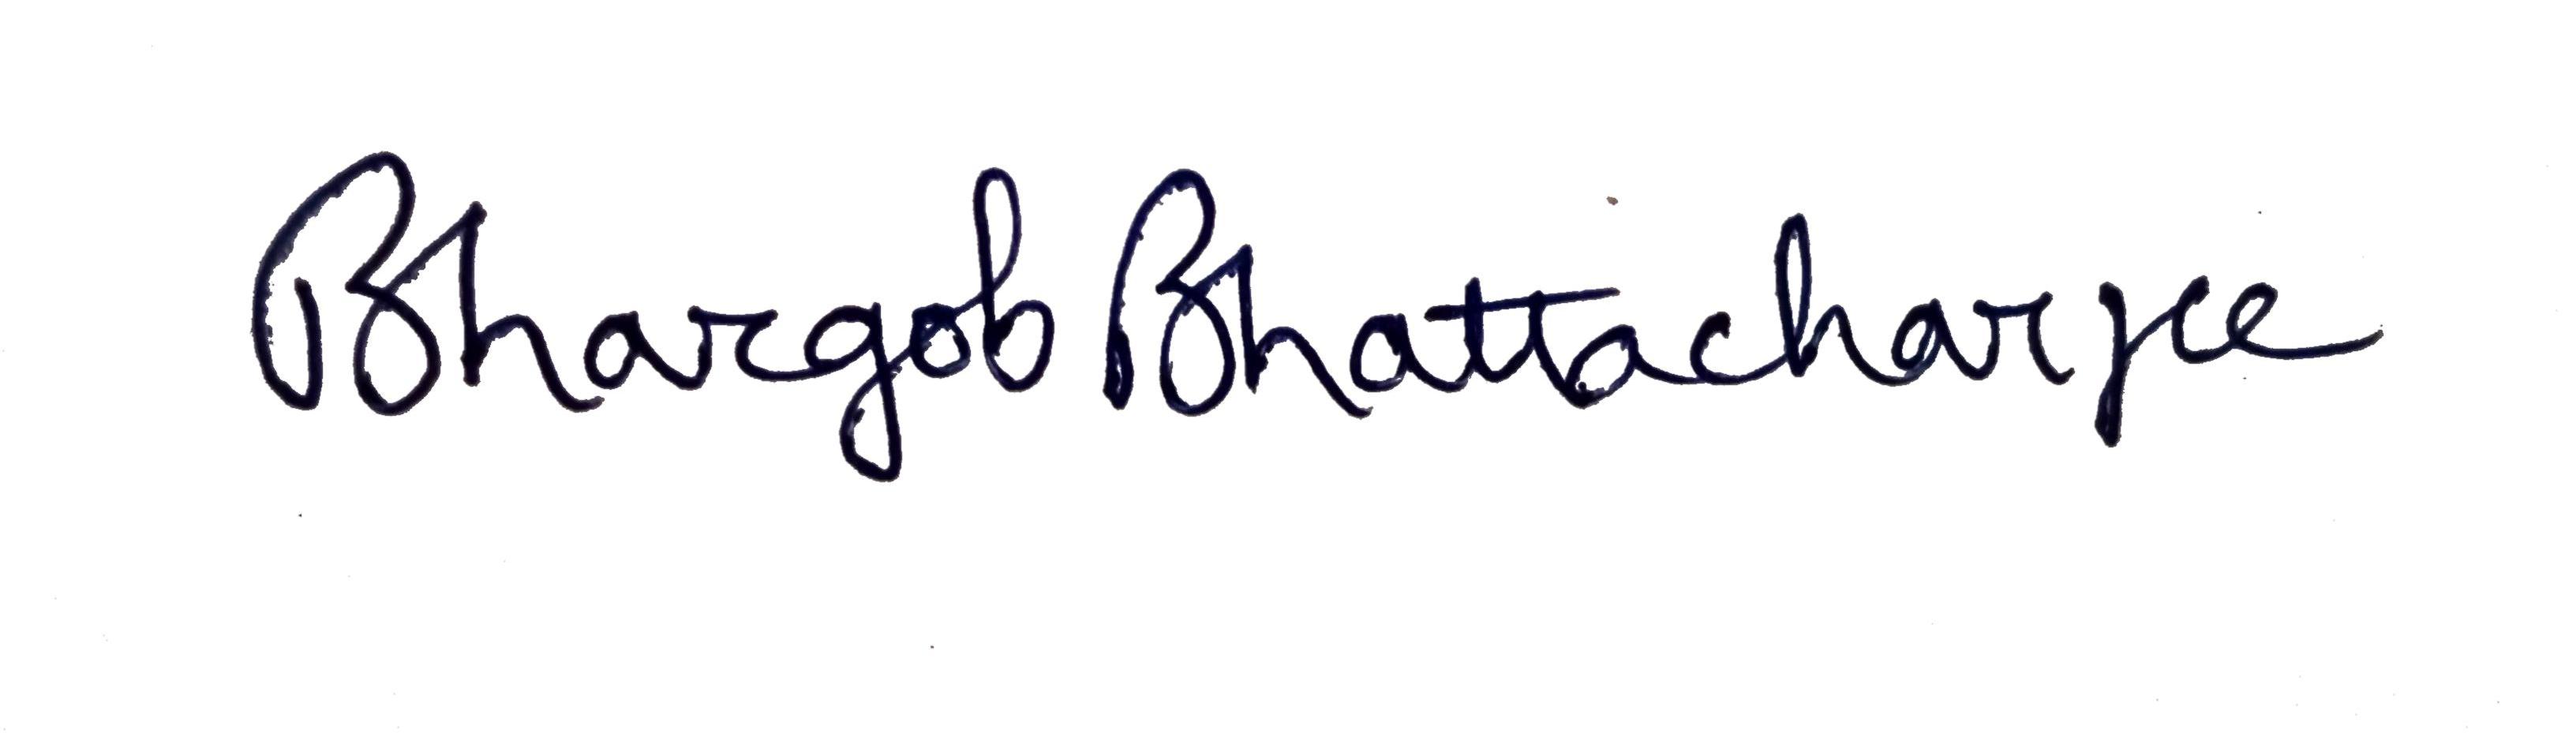 Bhargob Bhattacharjee